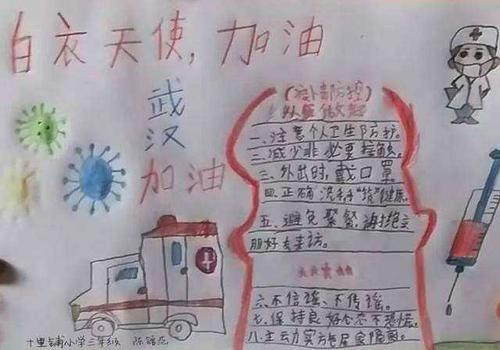 白衣天使,加油
武
汉
加油
(疫情防控)
从我做起
一、注意个人卫生防护。
二、减少非必要接触。
三、外出时,戴口罩
四、正确洗手"抗"健康。
五、避免聚餐,谢绝亲
朋好友来访。
六、不信谣、不传谣。
七、保持良好心态不恐慌。
八、主动
十里铺小学三年级 陈